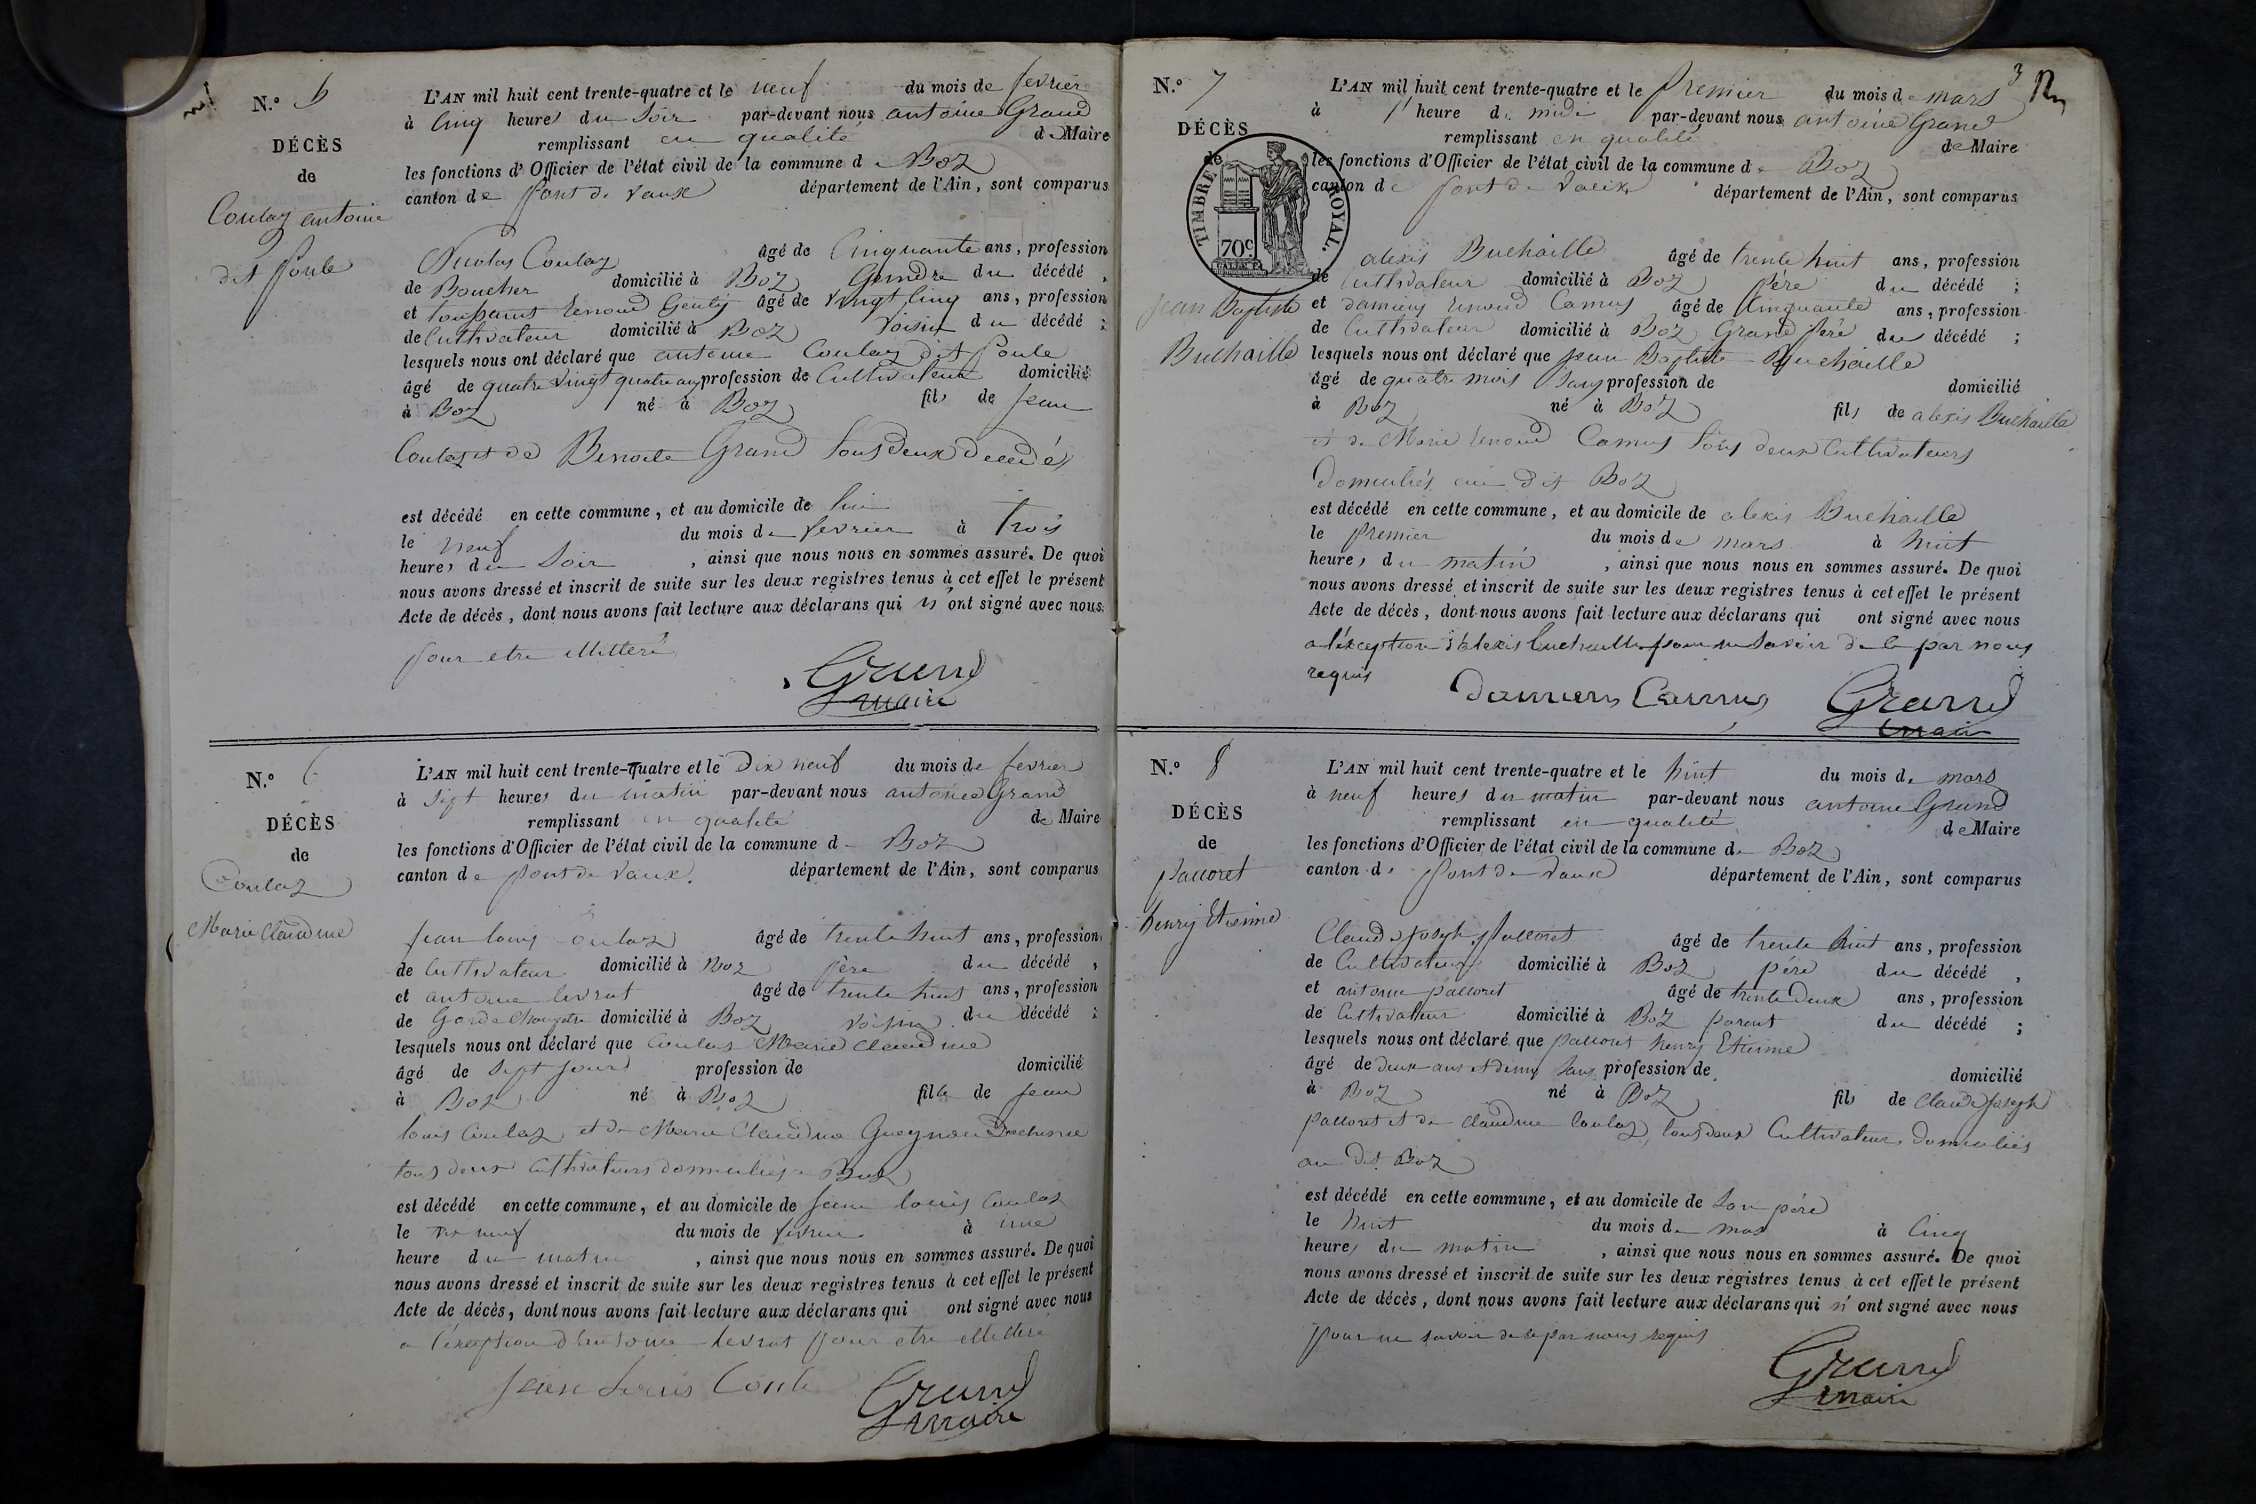 N.º 5
DÉCÈS
de
Coulaz antoine
dit Poule
L'AN mil huit cent trente-quatre et le neuf du mois de fevrier
à cinq heures du soir par-devant nous antoine Grand
remplissant en qualité de Maire
les fonctions d'Officier de l'état civil de la commune de Boz
canton de pont de vaux département de l'Ain, sont comparus
Nicolas Coulaz âgé de Cinquante ans, profession
de Boucher domicilié à Boz Gendre du décédé,
et Renoud Genty âgé de vingt cinq ans, profession
de Cultivateur domicilié à Boz voisin du décédé;
lesquels nous ont déclaré que antoine Coulaz dit Poule
âgé de quatre vingt quatre ans profession de Cultivateur domicilié
à Boz né à Boz fils de Jean
Coulaz et de Benoite Grand tous deux décédés
est décédé en cette commune, et au domicile de lui
le neuf du mois de fevrier à trois
heures du soir, ainsi que nous nous en sommes assuré. De quoi
nous avons dressé et inscrit de suite sur les deux registres tenus à cet effet le présent
Acte de décès, dont nous avons fait lecture aux déclarans qui n'ont signé avec nous.
pour etre illitteré
Grand
maire
N.º 6
DÉCÈS
de
Coulaz
Marie Claudine
L'AN mil huit cent trente-quatre et le dix neuf du mois de fevrier
à sept heures du matin par-devant nous antoine Grand
remplissant en qualité de Maire
les fonctions d'Officier de l'état civil de la commune de Boz
canton de pont de vaux. département de l'Ain, sont comparus
Jean louis Coulaz âgé de trente huit ans, profession
de Cultivateur domicilié à Boz père du décédé,
et antoine levrat âgé de trente huit ans, profession
de Garde Champetre domicilié à Boz voisin du décédé;
lesquels nous ont déclaré que Coulas Marie Claudine
âgé de sept jours profession de domicilié
à Boz né à Boz fille de Jean
louis Coulaz et de Marie Claudine
tous deux cultivateurs domiciliés a Boz
est décédé en cette commune, et au domicile de Jean louis Coulaz
le dix neuf du mois de fevrier à une
heure du matin, ainsi que nous nous en sommes assuré. De quoi
nous avons dressé et inscrit de suite sur les deux registres tenus à cet effet le présent
Acte de décès, dont nous avons fait lecture aux déclarans qui ont signé avec nous
a l'exception d'antoine levrat pour etre illitteré
Jean Louis Coulaz
Grand
maire
3
N.º 7
DÉCÈS
de
TIMBRE ROYAL.
70c
Jean Baptiste
Buchaille
L'AN mil huit cent trente-quatre et le Premier du mois de mars
à 1 heure de midi par-devant nous antoine Grand
remplissant en qualité de Maire
les fonctions d'Officier de l'état civil de la commune de Boz
canton de pont de vaux département de l'Ain, sont comparus
alexis Buchaille âgé de trente huit ans, profession
de Cultivateur domicilié à Boz père du décédé;
et damiens renoud Camus âgé de Cinquante ans, profession
de Cultivateur domicilié à Boz Grand père du décédé;
lesquels nous ont déclaré que Jean Baptiste Buchaille
âgé de quatre mois sans profession de domicilié
à Boz né à Boz fils de alexis Buchaille
et de Marie renoud Camus tous deux Cultivateurs
domiciliés au dit Boz
est décédé en cette commune, et au domicile de alexis Buchaille
le premier du mois de mars à huit
heures du matin, ainsi que nous nous en sommes assuré. De quoi
nous avons dressé et inscrit de suite sur les deux registres tenus à cet effet le présent
Acte de décès, dont nous avons fait lecture aux déclarans qui ont signé avec nous
a l'exception d'alexis Buchaille pour ne savoir de ce par nous
requis
Damiens Camus Grand
maire
N.º 8
DÉCÈS
de
paccoret
henry Etienne
L'AN mil huit cent trente-quatre et le huit du mois de mars
à neuf heures du matin par-devant nous antoine Grand
remplissant en qualité de Maire
les fonctions d'Officier de l'état civil de la commune de Boz
canton de pont de vaux département de l'Ain, sont comparus
Claude joseph paccoret âgé de trente huit ans, profession
de Cultivateur domicilié à Boz père du décédé,
et antoine paccoret âgé de trente deux ans, profession
de Cultivateur domicilié à Boz parent du décédé;
lesquels nous ont déclaré que paccoret henry Etienne
âgé de deux ans et demy sans profession de domicilié
à Boz né à Boz fils de Claude joseph
paccoret et de claudine Coulaz, tous deux Cultivateurs domiciliés
au dit Boz
est décédé en cette commune, et au domicile de son père
le huit du mois de mars à Cinq
heures du matin, ainsi que nous nous en sommes assuré. De quoi
nous avons dressé et inscrit de suite sur les deux registres tenus à cet effet le présent
Acte de décès, dont nous avons fait lecture aux déclarans qui n'ont signé avec nous
pour ne savoir de ce par nous requis
Grand
maire